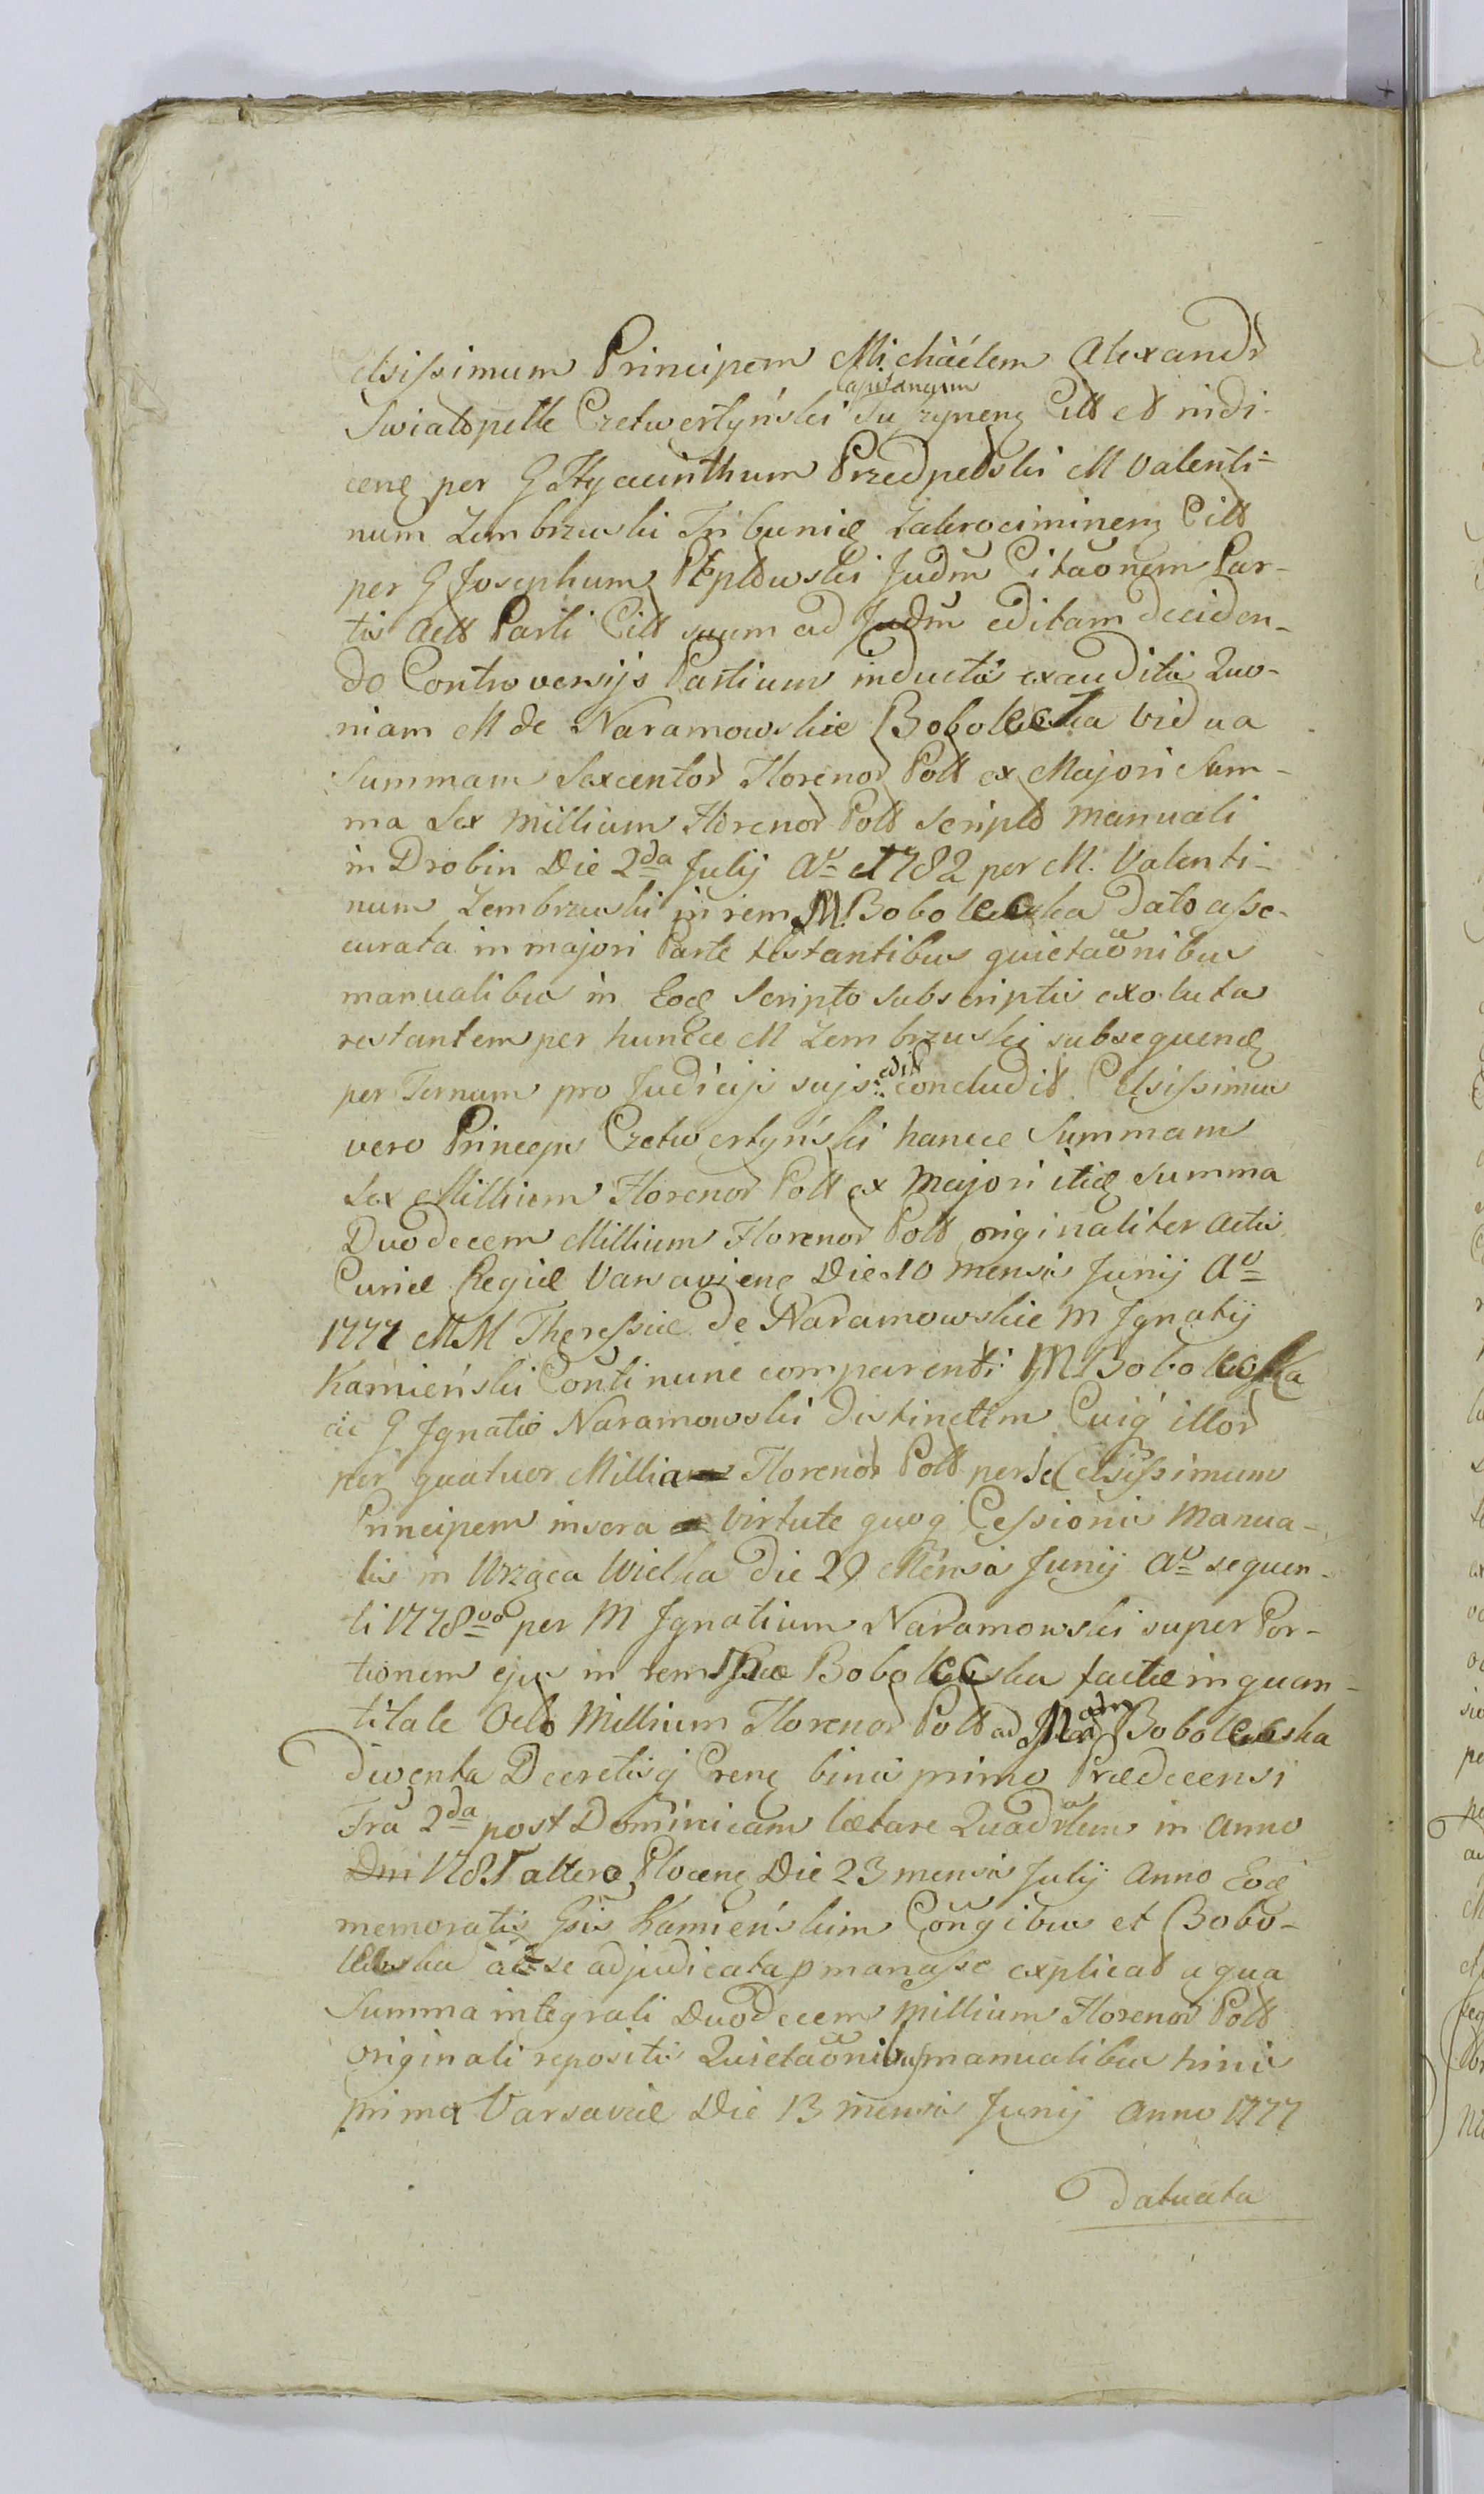 elsissimum Principem Michäelem Alexandr
Swiatopelk Czetwertyński Capitaneum Suzynen Citt et nidi-
cen per G Hyacinthum Przedpełski M Valenti-
num Zembrzuski Tribunid Zakrociminen Citt
per G Josephum Jud̃m Citaõnem Par-
tis Act Parti Citt suum ad Jud̃m editam deciden-
do Controversijs Partium inductis exauditis Quo-
niam M de Naramowskie Bobolecka Vidua
Summam Sexcentor Florenor Poll ex Majori Sum-
ma Sex Millium Florenor Poll Scripto Manuali
in Drobin Die 2da Julij Ao 1782 per M. Valenti-
num Zembrzuski in rem M. Bobolecka dato asse-
curata in majori Parte testantibus quietaõnibus
manualibus in Eod Scripto subscriptis exoluta
restantem per huncce M Zembrzuski subsequen
per Ternam pro Judicijs sujs edit concludit Celsissimus
vero Princeps Czetwertyński hancce Summam
Sex Millium Florenor Poll ex Majori itid Summa
Duodecem Millium Florenor Poll originaliter Actis
Curiæ Regiæ Varsavien Die 10 mensis Junij Ao
1777 MM Theressiæ de Naramowskie M Jgnatij
Kamieński Contĩ nunc comparenti M Bobolecka
ac G Jgnatio Naramowski distinctim Cuiq illor
per quatuor Millia Florenor Poll per se Celsissimum
Principem inscra Virtute quoq Cessionis Manua-
lis in Wrząca Wielka die 29 Mensis Junij Ao sequen-
ti 1778vo per M Jgnatium Naramowski super Por-
tionem ejus in rem Bobolecka factæ in quan-
titate Octo Millium Florenor Poll ad Bobolecska
diventa Decretisq Cren binis primo Prædecensi
Fra 2da post Dominicam lætare Quadrlem in Anno
Dni 1781 altero Plocen Die 23 mensis Julij Anno Eod
memoratis Gsis Kamieńskim Coñgibus et Bobo-
lecska ac se adjudicata pmanasse explicat a qua
Summa integrali Duodecem Millium Florenor Poll
originali repositis Quietaõnibus manualibus binis
prima Varsaviæ Die 13 mensis Junij Anno 1777
datuata